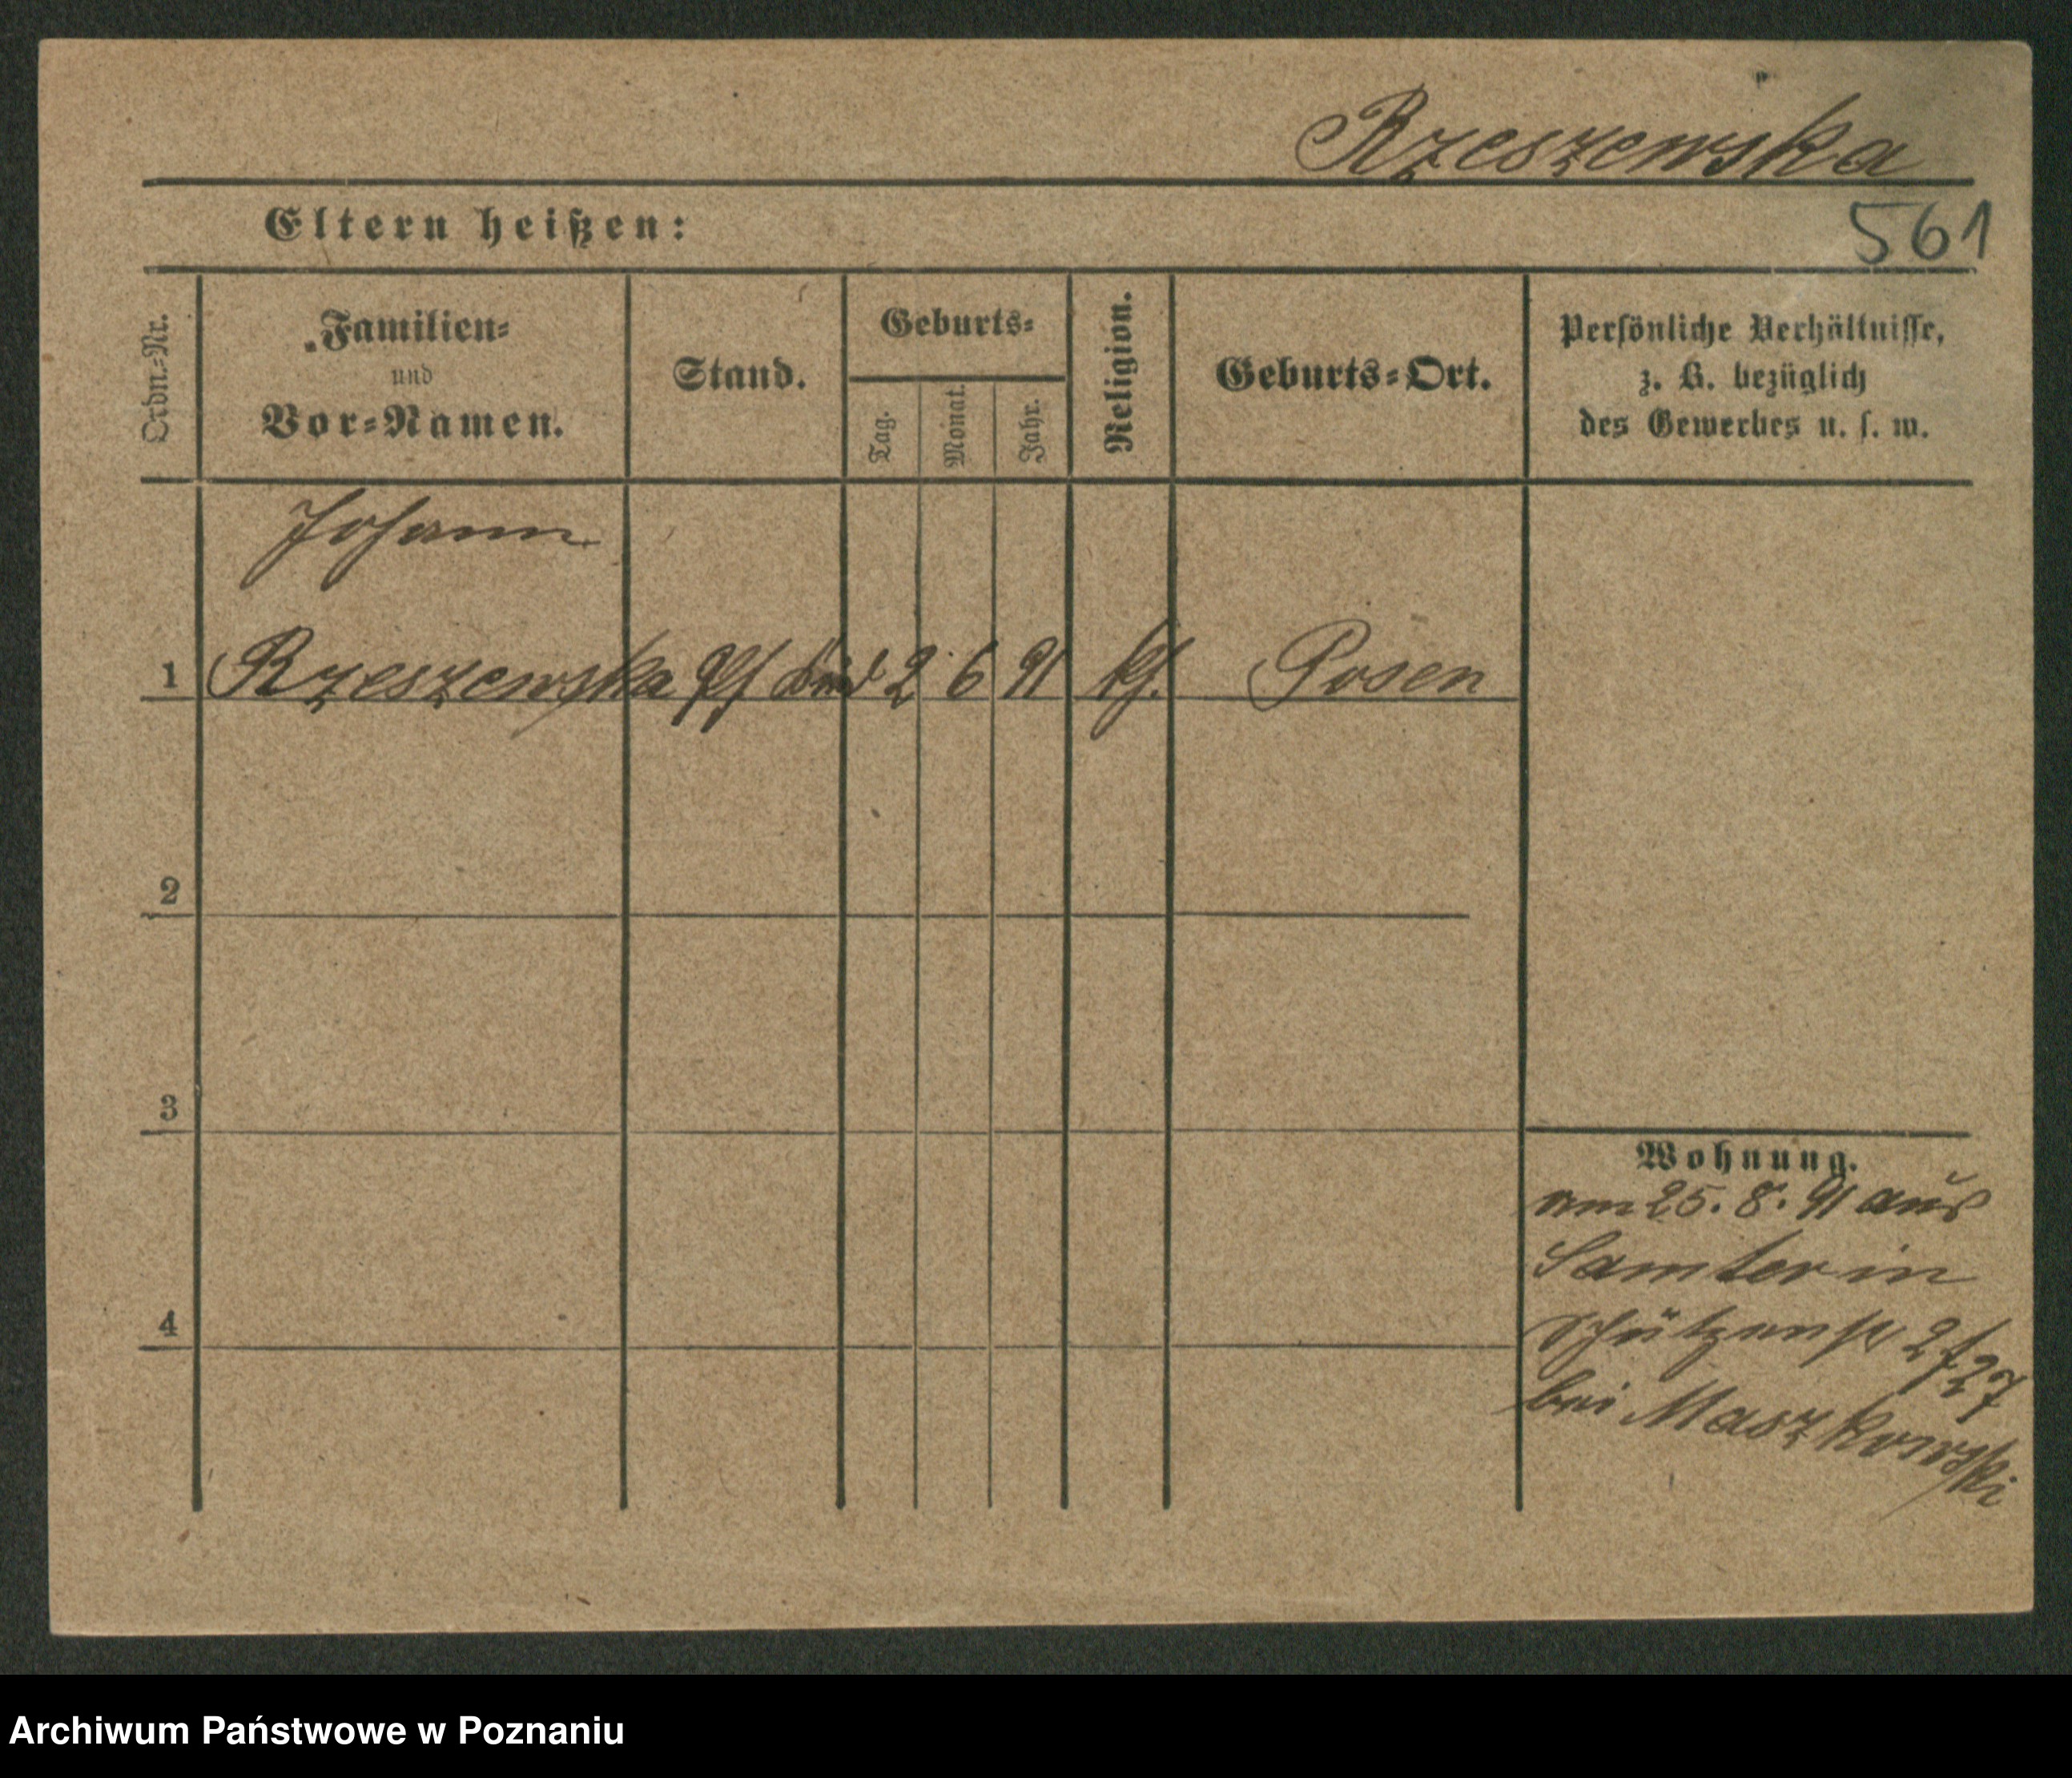 Rzeszewska
Eltern heißen:
561
Ordn.-Nr.
Familien-
und
Vor-Namen.
Stand.
Geburts-
Tag.
Monat.
Jahr.
Religion.
Geburts-Ort.
Persönliche Verhältnisse,
z. B. bezüglich
des Gewerbes u. s. w.
Johann
1 Rzeszewska 2 6 91 Posen
2
3
4
Wohnung.
am 25. 8. 91 aus
Samter in
Schützenstr 27/27
bei Maszkowski
Archiwum Państwowe w Poznaniu